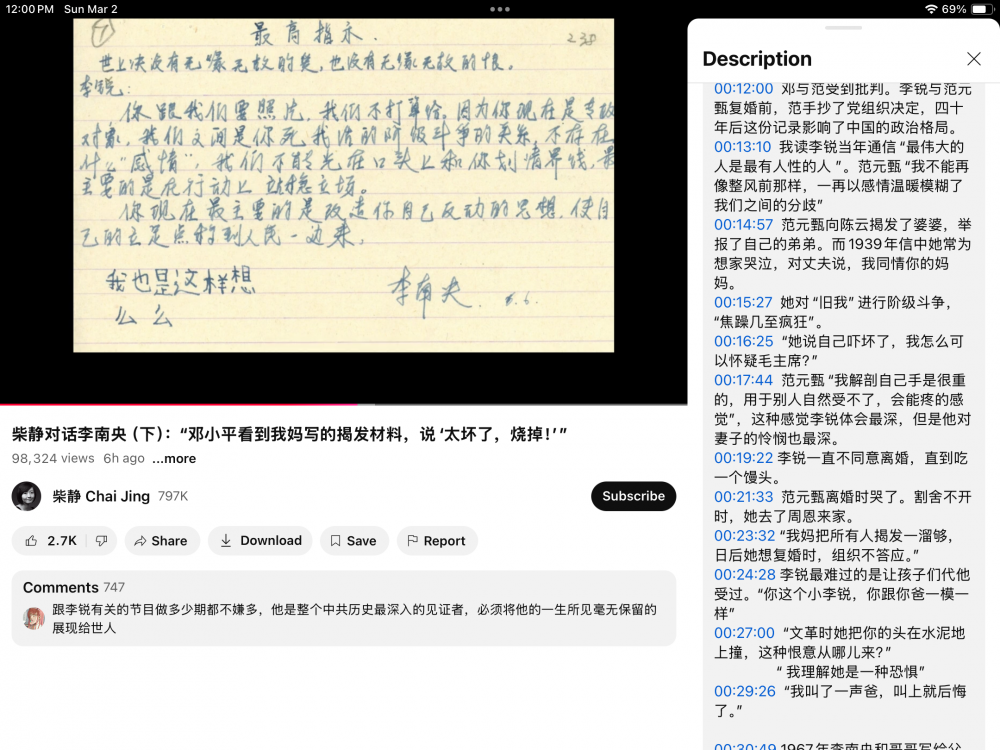 12:00 PM Sun Mar 2
69%
最高指示.
238
世上决没有无缘无故的爱,也没有无缘无故的恨。
李锐:
你跟我们要照片,我们不打算给。因为你现在是专政
对象,我们之间是你死我活的阶级斗争的关系,不存在
什么“感情”,我们不能光在口头上和你划清界线,最
主要的是在行动上站稳立场。
你现在最主要的是改造你自己反动的思想,使自
己的立足点移到人民一边来。
我也是这样想
李南央. 8.6.
么 么
柴静对话李南央(下):“邓小平看到我妈写的揭发材料,说‘太坏了,烧掉!’”
98,324 views 6h ago ...more
柴静 Chai Jing 797K
Subscribe
2.7K
Share
Download
Save
Report
Comments 747
跟李锐有关的节目做多少期都不嫌多,他是整个中共历史最深入的见证者,必须将他的一生所见毫无保留的
展现给世人
Description
00:12:00 邓与范受到批判。李锐与范元
甄复婚前,范手抄了党组织决定,四十
年后这份记录影响了中国的政治格局。
00:13:10 我读李锐当年通信“最伟大的
人是最有人性的人 ”。范元甄“我不能再
像整风前那样,一再以感情温暖模糊了
我们之间的分歧”
00:14:57 范元甄向陈云揭发了婆婆,举
报了自己的弟弟。而1939年信中她常为
想家哭泣,对丈夫说,我同情你的妈
妈。
00:15:27 她对“旧我”进行阶级斗争,
“焦躁几至疯狂”。
00:16:25 “她说自己吓坏了,我怎么可
以怀疑毛主席?”
00:17:44 范元甄“我解剖自己手是很重
的,用于别人自然受不了,会能疼的感
觉”,这种感觉李锐体会最深,但是他对
妻子的怜悯也最深。
00:19:22 李锐一直不同意离婚,直到吃
一个馒头。
00:21:33 范元甄离婚时哭了。割舍不开
时,她去了周恩来家。
00:23:32 “我妈把所有人揭发一溜够,
日后她想复婚时,组织不答应。”
00:24:28 李锐最难过的是让孩子们代他
受过。“你这个小李锐,你跟你爸一模一
样”
00:27:00 “文革时她把你的头在水泥地
上撞,这种恨意从哪儿来?”
“ 我理解她是一种恐惧”
00:29:26 “我叫了一声爸,叫上就后悔
了。”
00:30:49 1967年李南央和哥哥写给父